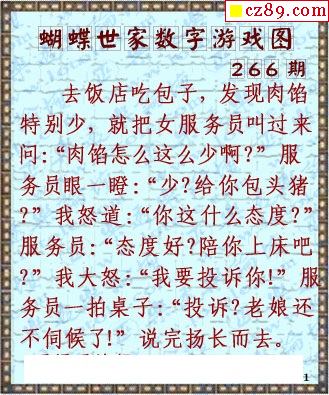 cz89.com
蝴蝶世家数字游戏图
266期
去饭店吃包子，发现肉馅
特别少，就把女服务员叫过来
问:“肉馅怎么这么少啊?” 服
务员眼一瞪:“少?给你包头猪
?” 我怒道:“你这什么态度?”
服务员:“态度好?陪你上床吧
?” 我大怒:“我要投诉你!” 服
务员一拍桌子:“投诉?老娘还
不伺候了!” 说完扬长而去。
1